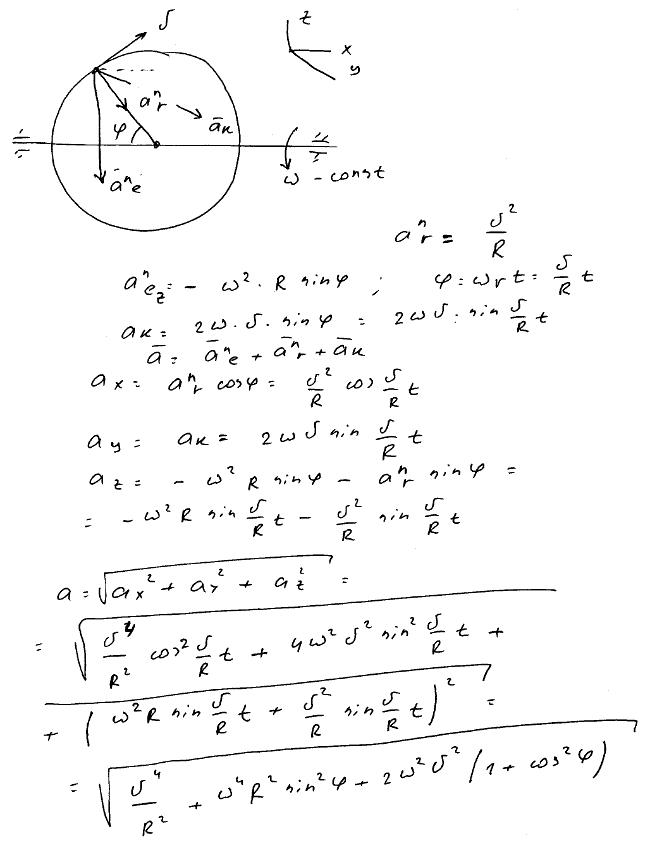 z
v
x
y
aⁿᵣ
āₖ
φ
āⁿₑ
ω - const
aⁿᵣ = v²/R
aⁿₑz = - ω² · R sin φ ; φ = ωᵣt = v/R t
aₖ = 2ω · v · sin φ = 2ωv · sin v/R t
ā = āⁿₑ + āⁿᵣ + āₖ
aₓ = aⁿᵣ cos φ = v²/R cos v/R t
a_y = aₖ = 2ωv sin v/R t
a_z = - ω² R sin φ - aⁿᵣ sin φ =
= - ω² R sin v/R t - v²/R sin v/R t
a = √(aₓ² + a_y² + a_z²) =
= √(v⁴/R² cos² v/R t + 4ω² v² sin² v/R t +
+ (ω² R sin v/R t + v²/R sin v/R t)²) =
= √(v⁴/R² + ω⁴ R² sin² φ + 2ω² v² (1 + cos² φ))